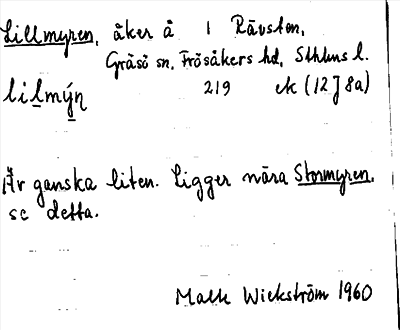 Lillmyren, åker å 1 Rävsten,
Gräsö sn, Frösåkers hd, Sthlms l.
lilmýn 219 ek (12J8a)
Är ganska liten. Ligger nära Stormyren.
se detta.
Wickström 1960